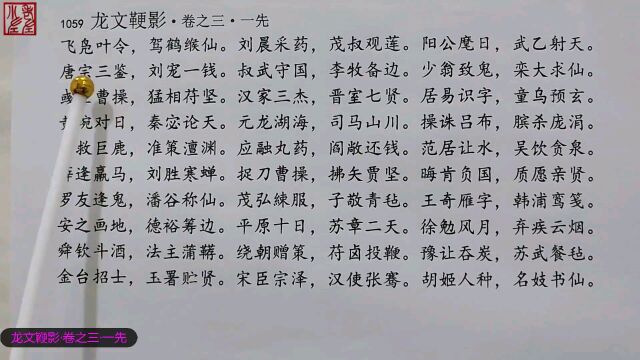 1059 龙文鞭影·卷之三·一先
飞凫叶令，驾鹤缑仙。刘晨采药，茂叔观莲。阳公麾日，武乙射天。
唐宗三鉴，刘宠一钱。叔武守国，李牧备边。少翁致鬼，栾大求仙。
曹操，猛相苻坚。汉家三杰，晋室七贤。居易识字，童乌预玄。
琬对日，秦宓论天。元龙湖海，司马山川。操诛吕布，膑杀庞涓。
救巨鹿，准策澶渊。应融丸药，阎敞还钱。范居让水，吴饮贪泉。
逢羸马，刘胜寒蝉。捉刀曹操，拂矢贾坚。晦肯负国，质愿亲贤。
罗友逢鬼，潘谷称仙。茂弘練服，子敬青毡。王奇雁字，韩浦鸾笺。
安之画地，德裕筹边。平原十日，苏章二天。徐勉风月，弃疾云烟。
舜钦斗酒，法主蒲鞯。绕朝赠策，苻卤投鞭。豫让吞炭，苏武餐毡。
金台招士，玉署贮贤。宋臣宗泽，汉使张骞。胡姬人种，名妓书仙。
龙文鞭影·卷之三·一先